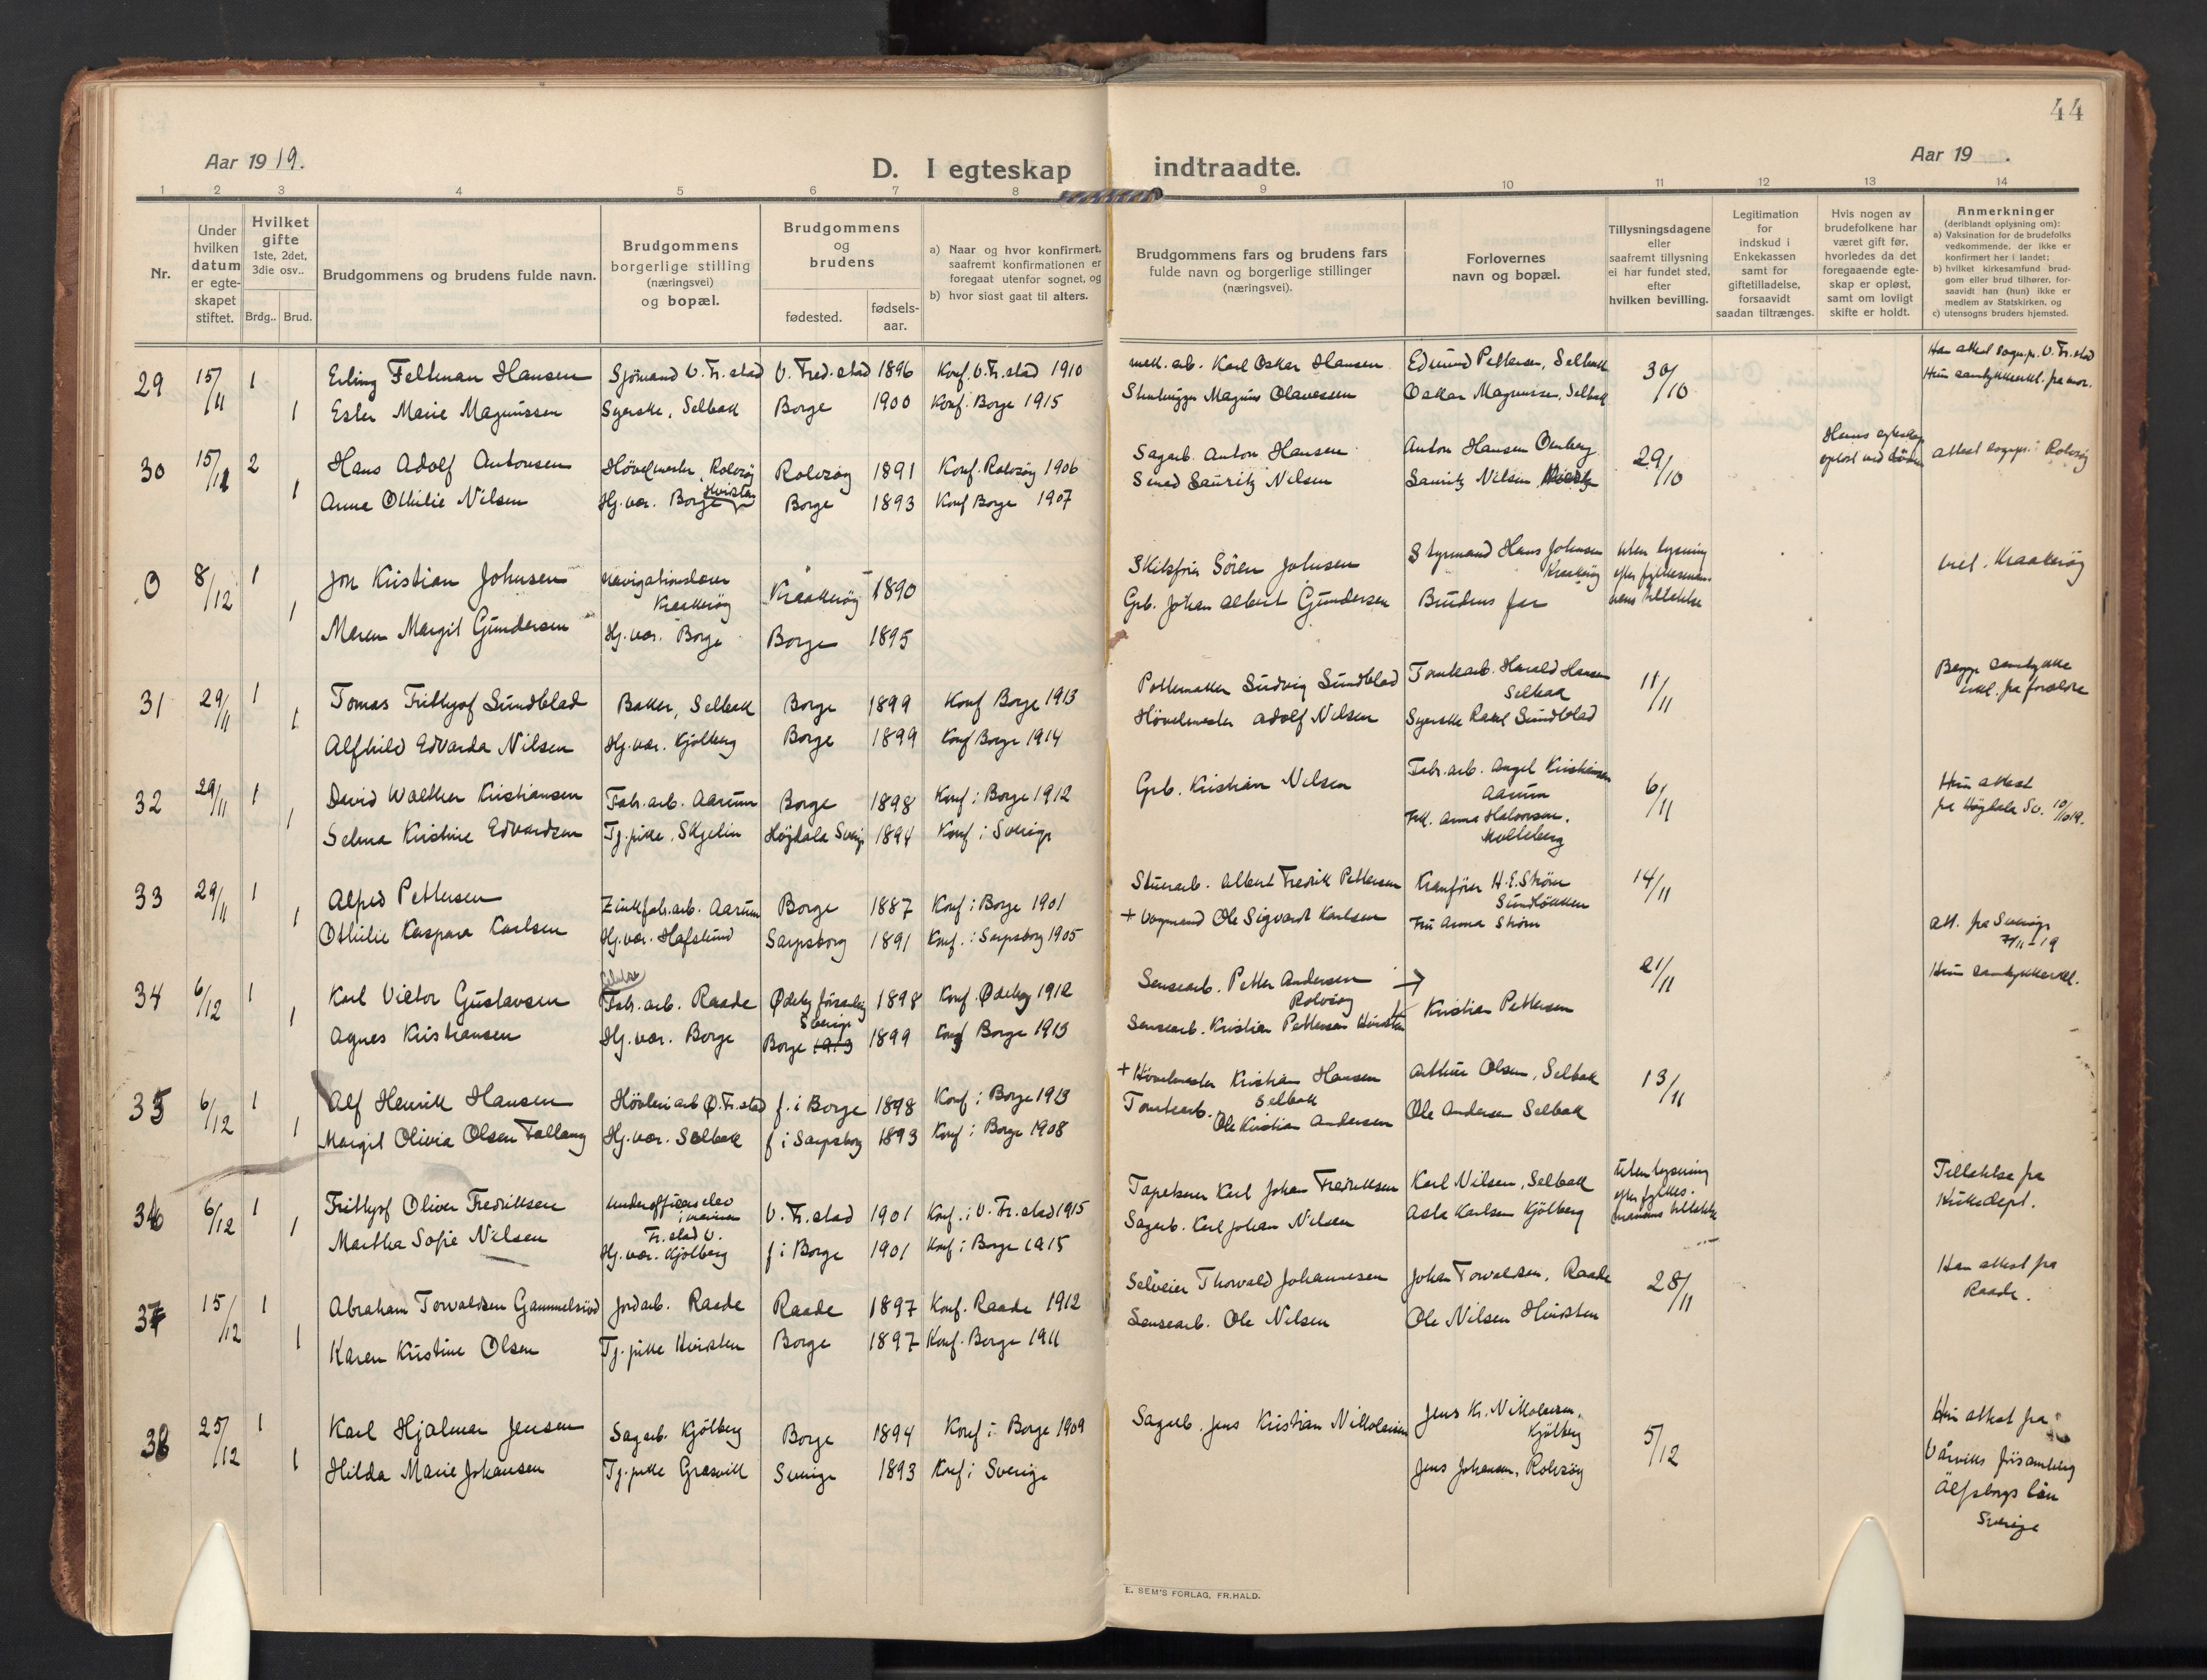 44
Aar 1919.
D. I egteskap indtraadte.
Aar 19 .
1 2 3 4 5 6 7 8 9 10 11 12 13 14
Nr.
Under hvilken datum er egteskapet stiftet.
Hvilket gifte 1ste, 2det, 3die osv..
Brdg.. Brud.
Brudgommens og brudens fulde navn.
Brudgommens borgerlige stilling (næringsvei) og bopæl.
Brudgommens og brudens
fødested.
fødsels-aar.
a) Naar og hvor konfirmert, saafremt konfirmationen er foregaat utenfor sognet, og
b) hvor sidst gaat til alters.
Brudgommens fars og brudens fars fulde navn og borgerlige stillinger (næringsvei).
Forlovernes navn og bopæl.
Tillysningsdagene eller saafremt tillysning ei har fundet sted, efter hvilken bevilling.
Legitimation for indskud i Enkekassen samt for giftetilladelse, forsaavidt saadan tiltrænges.
Hvis nogen av brudefolkene har været gift før, hvorledes da det foregaaende egteskap er opløst, samt om lovligt skifte er holdt.
Anmerkninger (deriblandt oplysning om):
a) Vaksination for de brudefolks vedkommende, der ikke er konfirmert her i landet;
b) hvilket kirkesamfund brudgom eller brud tilhører, forsaavidt han (hun) ikke er medlem av Statskirken, og
c) utensogns bruders hjemsted.
29 15/11 1 Erling Feltman Hansen Sjömand V. Fr.stad V. Fred.stad 1896 Konf. V. Fr.stad 1910 mek. arb. Karl Oskar Hansen Edmund Pettersen, Selbak 30/10 Han attest sogнepr. V. Fr.stad
1 Ester Marie Magnussen Syerske, Selbak Borge 1900 Konf. Borge 1915 Stenhugger Magnus Olavessen Oskar Magnussen, Selbak Hun samtykkeerkl. fra mor.
30 15/11 2 Hans Adolf Antonsen Hövelmester, Rolvsøy Rolvsøy 1891 Konf. Rolvsøy 1906 Sagarb. Anton Hansen Anton Hansen 29/10 Hans egteskap opløst ved döden attest sognepr. i Rolvsøy
1 Anne Othilie Nilsen Hj. vær. Borge Hvidsten Borge 1893 Konf Borge 1907 Smed Lauritz Nilsen Lauritz Nilsen
0 8/12 1 Jon Kristian Johnsen Navigationslærer Kraakerøy Kraakerøy 1890 Skibsfører Sören Johnsen Styrmand Hans Johnsen Kraakerøy uten lysning efter fylkesmannens tillatelse viet. Kraakerøy
1 Maren Margit Gundersen Hj. vær. Borge Borge 1895 Grb. Johan Albert Gundersen Brudens far
31 29/11 1 Tomas Frithjof Sundblad Baker, Selbak Borge 1899 Konf Borge 1913 Pottemaker Ludvig Sundblad Tomtearb. Harald Hansen Selbak 11/11 Begge samtykke erkl. fra forældre
1 Alfhild Edvarda Nilsen Hj. vær. Kjölberg Borge 1899 Konf Borge 1914 Hövelmester Adolf Nilsen Syerske Rakel Sundblad
32 29/11 1 David Walther Kristiansen Fabr. arb. Aarum Borge 1898 Konf i Borge 1912 Grb. Kristian Nilsen Fabr. arb. Angel Kristiansen Aarum 6/11 Hun attest
1 Selma Kristine Edvardsen Tj. pike, Skjelin Höjdala Sverige 1894 Konf i Sverige Frk. Anna Halvorsen, Molteberg fra Höjdala Sv.
33 29/11 1 Alfred Pettersen Zinkfabr. arb. Aarum Borge 1887 Konf i Borge 1901 Stuerarb. Albert Fredrik Pettersen Kranförer H. E. Ström Sundlökken 14/11
1 Othilie Kaspara Karlsen Hj. vær. Hafslund Sarpsborg 1891 Konf. i Sarpsborg 1905 + Vognmand Ole Sigvart Karlsen Fru Anna Ström att. fra Sverige 7/11-19
34 6/12 1 Karl Viktor Gustavsen Fabr. arb. Raade Ödeby församling Sverige 1898 Konf. Ödeby 1912 Sensearb. Petter Andersen Rolvsøy 21/11 Hun samtykkeerkl.
1 Agnes Kristiansen Hj. vær. Borge Borge 1913 1899 Konf Borge 1913 Sensearb. Kristian Pettersen Hvidsten Kristian Pettersen
35 6/12 1 Alf Henrik Hansen Hövleriarb Ö. Fr.stad f. i Borge 1898 Konf i Borge 1913 + Hövelmester Kristian Hansen Selbak Arthur Olsen, Selbak 13/11
1 Margit Olivia Olsen Tallang Hj. vær. Selbak f i Sarpsborg 1893 Konf i Borge 1908 Tomtearb. Ole Kristian Andersen Ole Andersen Selbak
36 6/12 1 Frithjof Oliver Fredriksen Underofficerselev i marinen Fr.stad V. V. Fr.stad 1901 Konf. i V. Fr.stad 1915 Tapetserer Karl Johan Fredriksen Karl Nilsen, Selbak Uten lysning efter fylkesmannens tillatelse Tillatelse fra Kirkedept.
1 Martha Sofie Nilsen Hj. vær. Kjölberg f i Borge 1901 Konf i Borge 1915 Sagarb. Karl Johan Nilsen Asta Karlsen Kjölberg
37 15/12 1 Abraham Torvaldsen Gammelsröd Jordarb. Raade Raade 1897 Konf. Raade 1912 Selveier Thorvald Johannesen Johan Torvaldsen, Raade 28/11 Han attest fra Raade.
1 Karen Kristine Olsen Tj. pike Hvidsten Borge 1897 Konf. Borge 1911 Sensearb. Ole Nilsen Ole Nilsen Hvidsten
38 25/12 1 Karl Hjalmar Jensen Sagarb. Kjölberg Borge 1894 Konf i Borge 1909 Sagarb. Jens Kristian Nikkolaisen Jens Kr. Nikkolaisen, Kjölberg 5/12 Hun attest fra
1 Hilda Marie Johansen Tj. pike Græsvik Sverige 1893 Konf i Sverige Jens Johansen, Rolvsøy Vårviks församling Älfsborgs län Sverige
E. SEM'S FORLAG, FR.HALD.